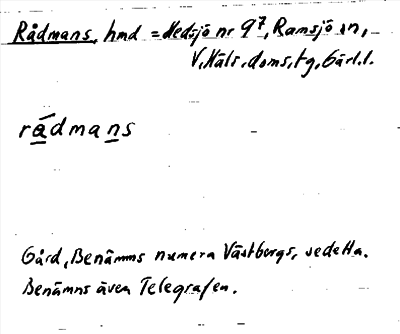 Rådmans, hmd = Hedsjö nr 9⁷, Ramsjö sn,
V. Häls. doms, tg, Gävl. l.
rádmans
Gård, Benämns numera Västbergs, se detta.
Benämns även Telegrafen.